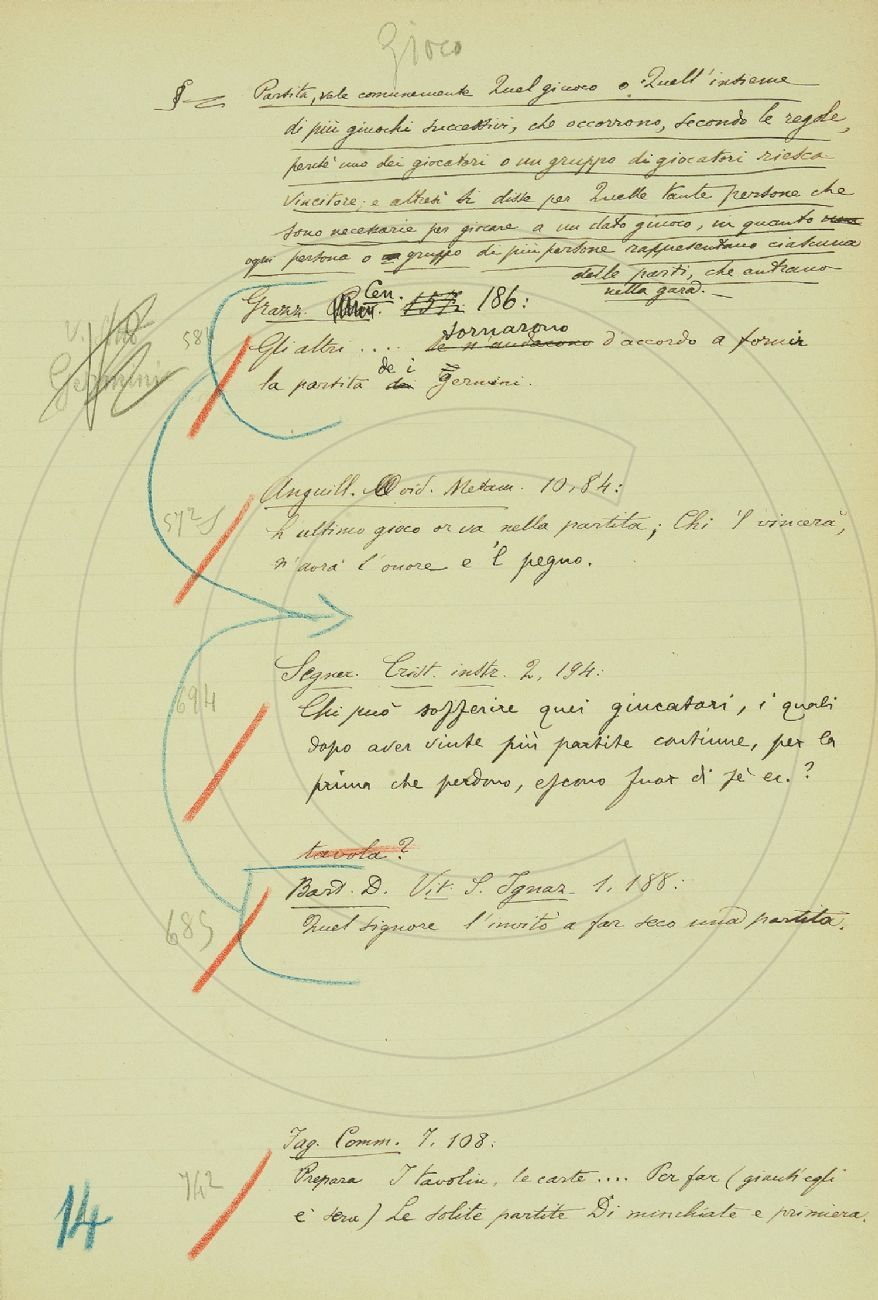 Gioco
§ — Partita, vale comunemente Quel giuoco o Quell'insieme
di più giuochi successivi, che occorrono, secondo le regole,
perchè uno dei giocatori o un gruppo di giocatori riesca
vincitore; e altresì si disse per Quelle tante persone che
sono necessarie per giocare a un dato giuoco, in quanto
ogni persona o gruppo di più persone rappresentano ciascuna
delle parti, che entrano
nella gara. —
Grazz. Cen. 157. 186:
V.
Germini
581
tornarono
Gli altri .... se n'andarono d'accordo a fornir
la partita de i Germini.
Anguill. Ovid. Metam. 10, 84:
572
L'ultimo gioco or va nella partita; Chi 'l vincerà,
n'avrà l'onore e 'l pegno.
Segner. Crist. instr. 2, 194:
694
Chi può sofferire quei giucatori, i quali
dopo aver vinte più partite continue, per la
prima che perdono, escono fuor di sè ec.?
tavola?
Bart. D. Vit. S. Ignaz. 1. 188:
685
Quel signore l'invitò a far seco una partita.
Fag. Comm. 7. 108:
742
Prepara I tavolin, le carte .... Per far (giacch'egli
è sera) Le solite partite Di minchiate e primiera.
14